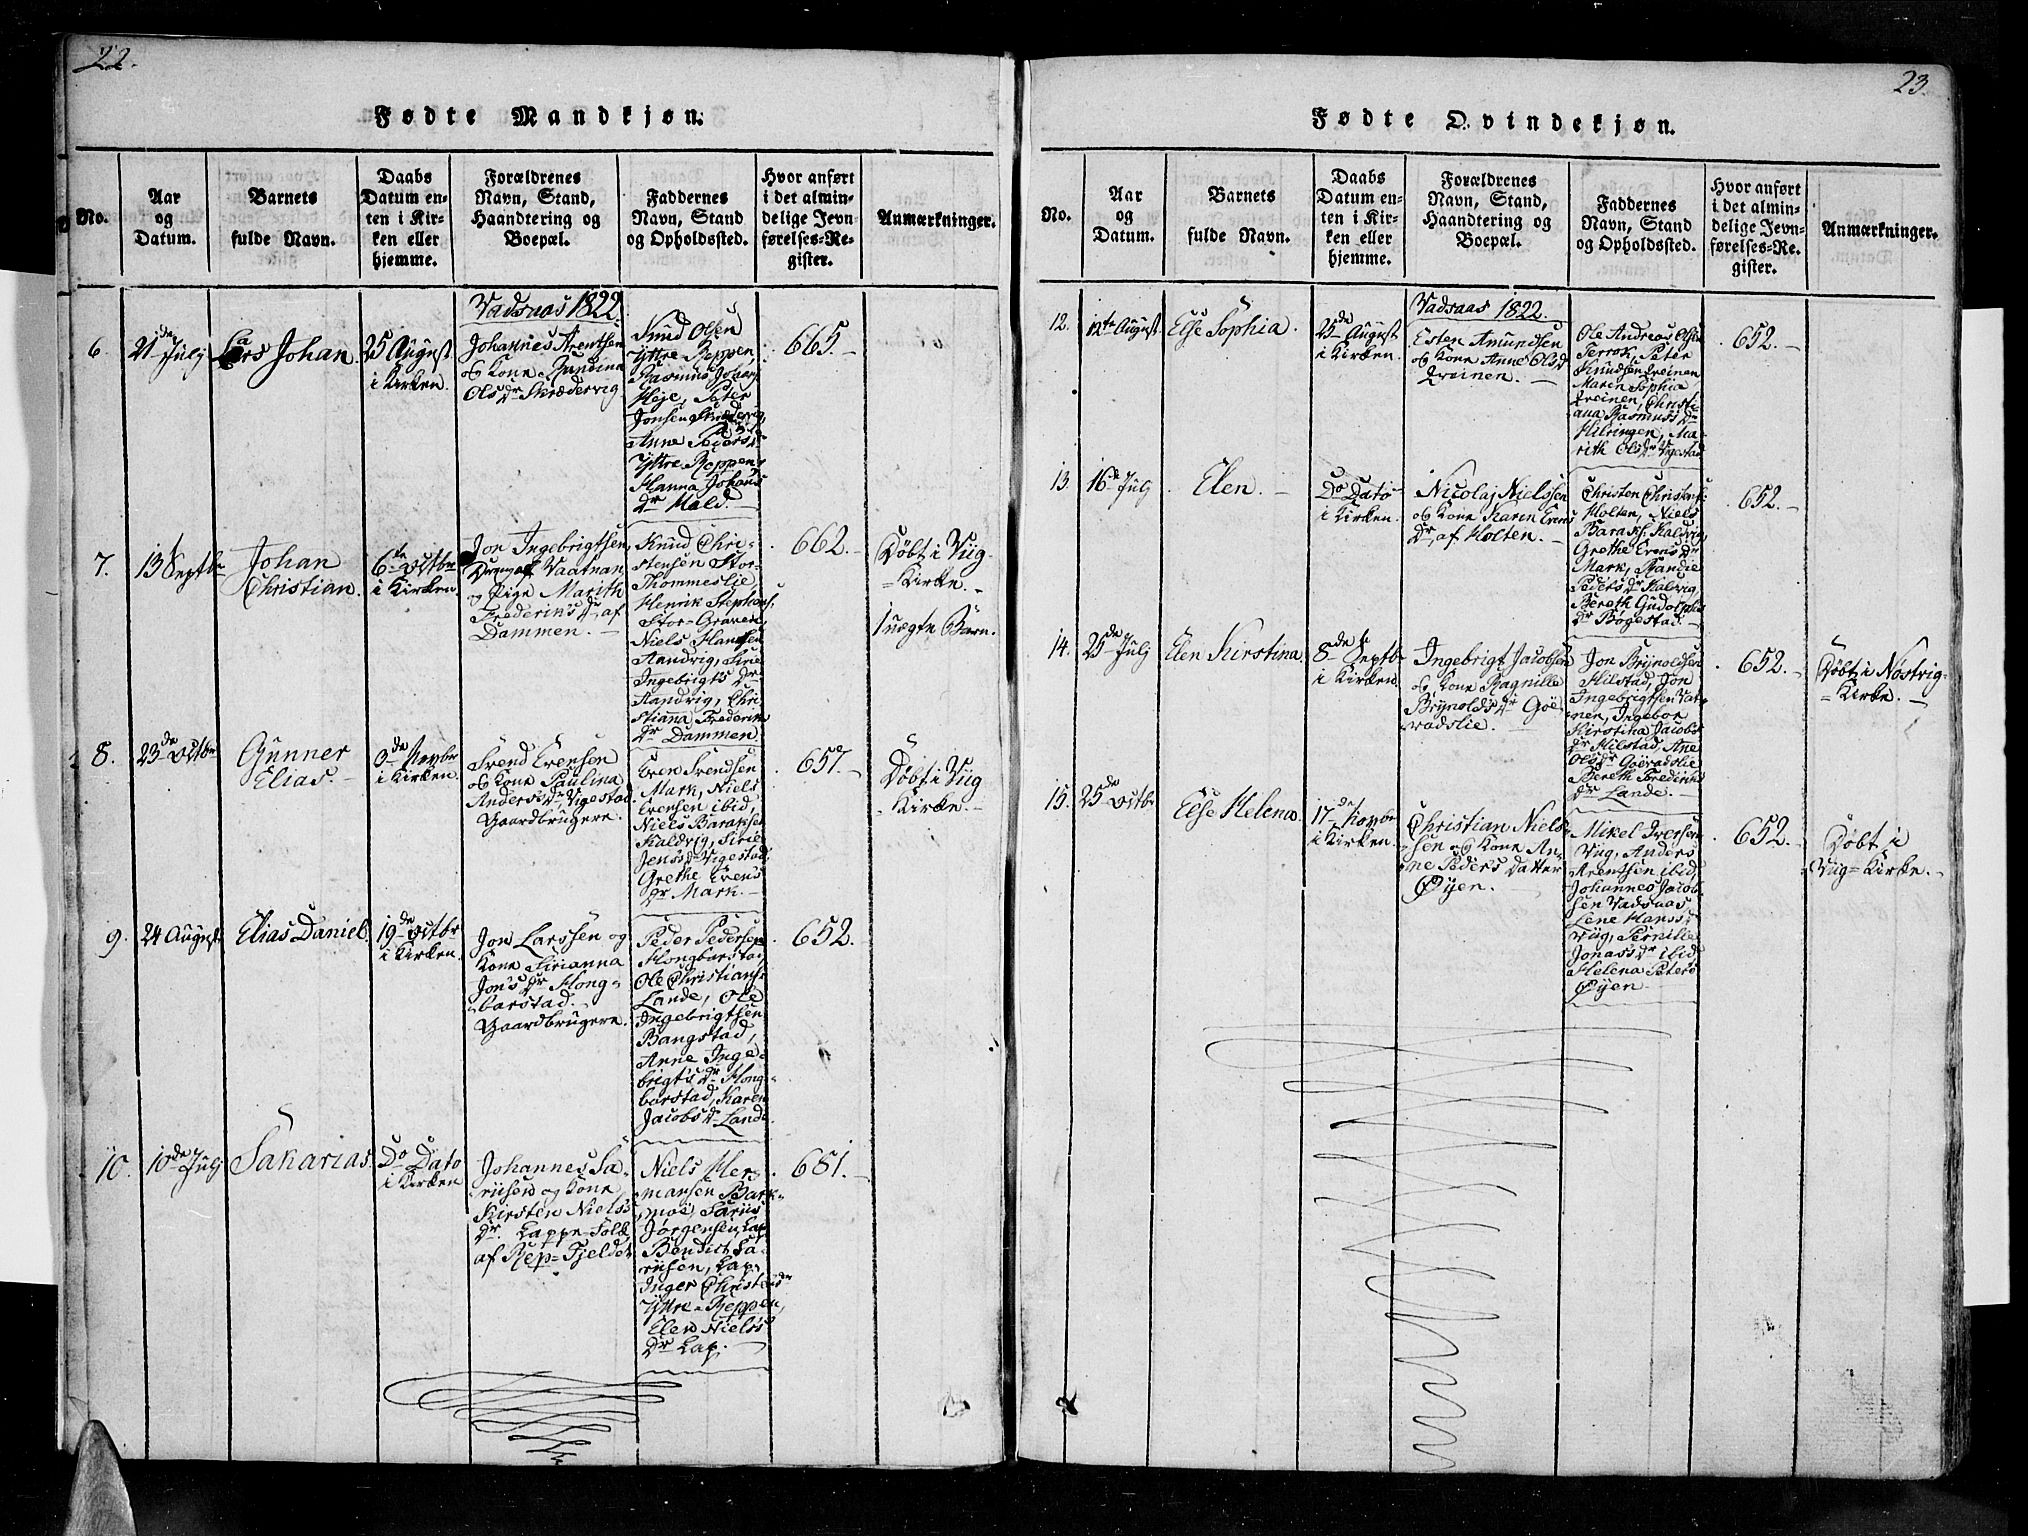 22.
Fødte Mandkjøn.
No.
Aar
og
Datum.
Barnets
fulde Navn.
Daabs
Datum en-
ten i Kir-
ken eller
hjemme.
Forældrenes
Navn, Stand,
Haandtering og
Boepæl.
Faddernes
Navn, Stand
og Opholdssted.
Hvor anført
i det almin-
delige Jevn-
førelses-Re-
gister.
Anmærkninger.
Vadsaas 1822.
6
21de July
Lars Johan.
25 August
i Kirken.
Johannes Arentsen
og Kone Gundina
Olsdr Skrædervig
Knud Olsen
Yttre Reppen,
Rasmus Johans
Heje, Peter
Jonsen Skrædervig,
Anne Pedersdr
Yttre Reppen,
Hanna Johans
dr Hald.
665.
7.
13 Septbr
Johan
Christian.
6de Octbr
i Kirken.
Jon Ingebrigtsen
Dreng af Vaatnan
og Pige Marith
Frederiksdr af
Dammen.
Knud Chri-
stensen Stor-
Thommeslie,
Henrik Stephans,
Stor-Graven,
Niels Hansen
Aandvig, Sine
Ingebrigtsdr
Aandvig, Chri-
stianna Frederiks
dr Dammen
662.
Døbt i Vug-
Kirke.
1 uægte Barn.
8.
23de Octbr
Gunner
Elias
3de Novbr
i Kirken
Svend Evensen
og Kone Paulina
Andersdr, Vigestad
Gaardbrugere.
Even Svendsen
Mark, Niels
Evensen ibid,
Niels Baraksen
Kaldvig, Siri
Jensdr Vigestad,
Grethe Evens
dr Mark.
657.
Døbt i Vug
Kirke.
9.
24 August
Elias Daniel.
19de Octbr
i Kirken.
Jon Larssen og
Kone Sirianna
Jonsdr Hong-
barstad.
Gaardbrugere.
Peder Pedersen
Hongbarstad,
Ole Christians.
Lande, Ole
Ingebrigtsen
Bangstad,
Anne Inge-
brigtsdr Hong-
barstad, Karen
Jacobsdr Lande
652.
10.
10de July
Sakarias.
Do Dato
i Kirken
Johannes Sa-
riusen og Kone
Kirsten Niels
dr. Lappe-Folk
af Rep-Fjeldet
Niels Her-
mansen Bark-
moe, Sarius
Jørgensen, Lap
Bendict Sa-
riusen, Lap,
Inger Christensdr
Yttre-Reppen,
Elen Niels
dr Lap.
681.
23.
Fødte Qvindekjøn.
No.
Aar
og
Datum.
Barnets
fulde Navn.
Daabs
Datum en-
ten i Kir-
ken eller
hjemme.
Forældrenes
Navn, Stand,
Haandtering og
Boepæl.
Faddernes
Navn, Stand
og Opholdssted.
Hvor anført
i det almin-
delige Jevn-
førelses-Re-
gister.
Anmærkninger.
Vadsaas 1822.
12.
12te August
Else Sophia.
25de August
i Kirken.
Esten Amundsen
og Kone Anne Olsd
Qveinen.
Ole Andreas Olsen
Terrok, Peter
Knudsen Qveinen,
Maren Sophia
Qveinen, Christi-
ana Rasmusdr
Hilringen, Ma-
rith Olsdr Vigestad
652.
13.
16de July
Elen.
Do Dato
i Kirken.
Nicolaj Nielssen
og Kone Karen Evens
dr, af Holten.
Christen Christens.
Holten, Niels
Baraks. Kaldvig,
Grethe Evensdr
Mark, Randie
Pedersdr Kalvig,
Bereth Gudolphs
dr Bøgestad.
652.
14.
25de July
Elen Kirstina
8de Septbr
i Kirken.
Ingebrigt Jacobsen
og Kone Ragnille
Brynoldsdr Gøe-
vadslie.
Jon Brynoldsen
Hilstad, Jon
Ingebrigtsen Vat-
nen, Ingebor
Kirstina Jacobs
dr Hilstad, Ane
Olsdr Gøevadslie
Bereth Frediriks
dr Lande.
652.
Døbt i Nøstvig-
Kirke.
15.
25de Octbr
Else Helena.
17de Novbr
i Kirken.
Christian Niels-
sen og Kone An-
ne Peders Datter
Øyen.
Mikel Iversen
Vug, Anders
Arentsen ibid,
Johannes Jacob-
sen Vadsaas
Lene Hans
Vug, Pernille
Jonasdr ibid
Helena Peters
Øyen.
652.
Døbt i
Vug-Kirke.